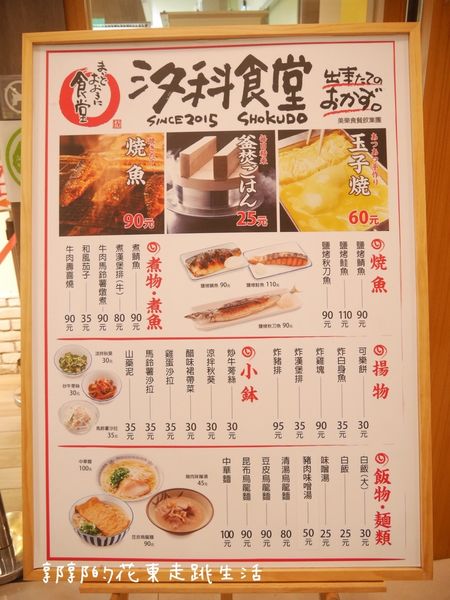 まいど
おおきに
食堂
汐科食堂
SINCE2015 SHOKUDO
出来たての
おかず。
美樂食餐飲集團
燒魚
90元
釜焚ごはん
25元
あつあつ手作り
玉子燒
60元
燒魚
鹽烤鯖魚 90元
鹽烤鮭魚 110元
鹽烤秋刀魚 90元
鹽烤鯖魚 90元
鹽烤鮭魚 110元
鹽烤秋刀魚 90元
煮物・煮魚
煮鯖魚 90元
煮漢堡排(牛) 80元
牛肉馬鈴薯燉煮 90元
和風茄子 35元
牛肉壽喜燒 90元
揚物
可樂餅 30元
炸白身魚 35元
炸雞塊 35元
炸漢堡排 35元
炸豬排 95元
小鉢
炒牛蒡絲 30元
涼拌秋葵 30元
醋味裙帶菜 30元
雞蛋沙拉 35元
馬鈴薯沙拉 35元
山藥泥 35元
涼拌秋葵
30元
炒牛蒡絲
30元
馬鈴薯沙拉
35元
飯物・麵類
白飯(大) 30元
白飯 25元
味噌湯 25元
豬肉味噌湯 50元
清湯烏龍麵 80元
豆皮烏龍麵 90元
昆布烏龍麵 90元
中華麵 100元
中華麵
100元
豬肉味噌湯
45元
豆皮烏龍麵
90元
郭郭的花東走跳生活